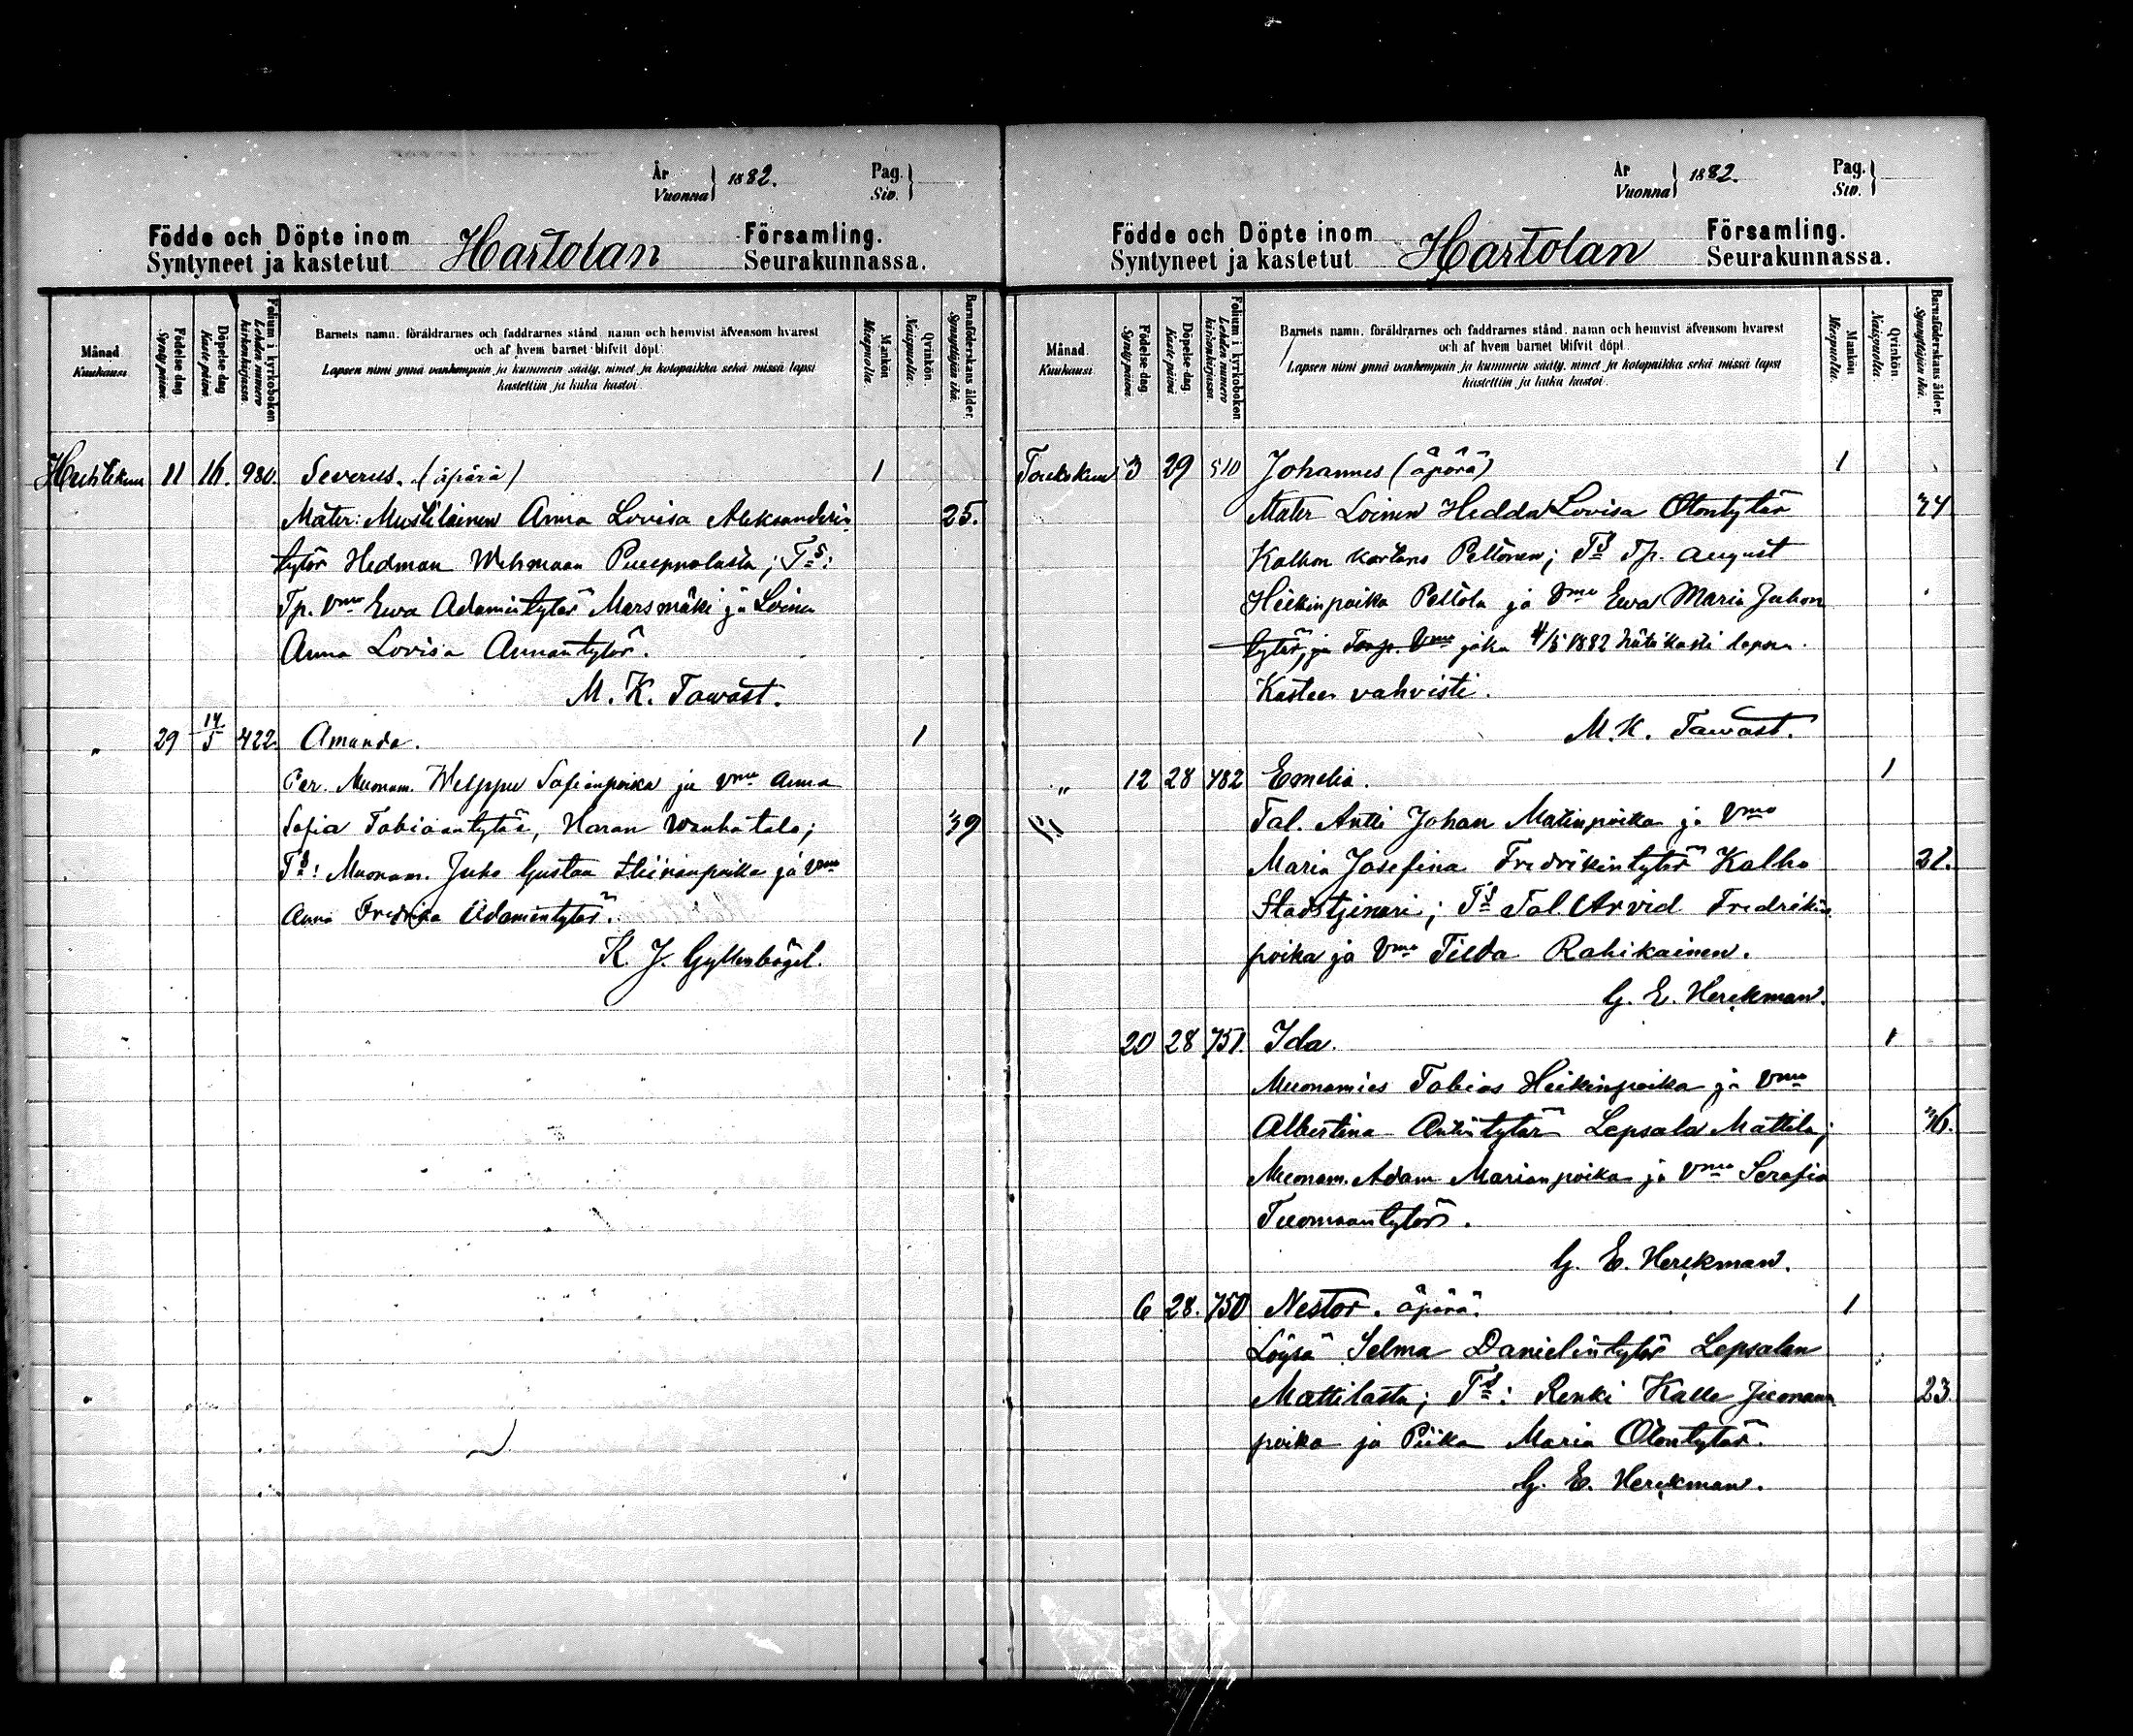 År
Vuonna 1882.
Pag.
Siv.
Födde och Döpte inom Hartolan Församling.
Syntyneet ja kastetut Seurakunnassa.
Månad.
Kuukausi.
Födelse dag.
Synty päivä.
Döpelse dag.
Kaste päivä
Folium i kyrkoboken
Lehden numero kirkonkirjassa.
Barnets namn, föräldrarnes och faddrarnes stånd, namn och hemvist äfvensom hvarest
och af hvem barnet blifvit döpt.
Lapsen nimi ynnä vanhempain ja kummein sääty, nimet ja kotopaikka sekä missä lapsi
kastettiin ja kuka kastoi.
Mankön
Miespuolia.
Qvinkön.
Naispuolia.
Barnaföderskans ålder.
Synnyttäjän ikä.
Huhtikuu 11 16. 980. Severus. (äpärä) 1
Mater: Mustilainen Anna Lovisa Aleksanderin 25.
tytär Hedman Wehmaan Pueppolasta; Ts:
Tp. Vmo Ewa Adamintytär Marsmäki ja Loinen
Anna Lovisa Annantytär.
M. K. Tawast.
" 29 14/5 422. Amanda. 1
Par. Muonam. Welppu Sofianpoika ja Vmo Anna
Sofia Tobiaantytär, Haran Wanhatalo; 39
Ts: Muonam. Juho Gustaa Hiinanpoika ja Vmo
Anna Fredrika Adamintytär.
K. J. Gyllenbögel.
År
Vuonna 1882.
Pag.
Siv.
Födde och Döpte inom Hartolan Församling.
Syntyneet ja kastetut Seurakunnassa.
Månad.
Kuukausi.
Födelse dag.
Synty päivä.
Döpelse dag.
Kaste päivä
Folium i kyrkoboken
Lehden numero kirkonkirjassa.
Barnets namn, föräldrarnes och faddrarnes stånd, namn och hemvist äfvensom hvarest
och af hvem barnet blifvit döpt.
Lapsen nimi ynnä vanhempain ja kummein sääty, nimet ja kotopaikka sekä missä lapsi
kastettiin ja kuka kastoi.
Mankön
Miespuolia.
Qvinkön.
Naispuolia.
Barnaföderskans ålder.
Synnyttäjän ikä.
Toukokuu 3 29 510 Johannes (äpärä) 1
Mater Loinen Hedda Lovisa Otontytär 34
Kalhon kartano Peltonen; Ts Tp. August
Heikinpoika Peltola ja Vmo Ewa Maria Juhon
tytär, ja Torp. Vmo joka 4/5 1882 hätäkasti lapsen.
Kasteen vahvisti.
M. K. Tawast.
" 12 28 482 Emelia. 1
Tal. Antti Johan Matinpoika ja Vmo
Maria Josefina Fredrikintytär Kalho 22.
Stadstjinari; Ts Tal. Arvid Fredrikin
poika ja Vmo Tilda Rahikainen.
G. E. Herckman.
20 28 751. Ida. 1
Muonamies Tobias Heikinpoika ja Vmo
Albertina Antintytär Lepsala Mattila; 36.
Muonam. Adam Marianpoika ja Vmo Serafia
Tuomaantytär.
G. E. Herckman.
6 28. 750 Nestor. äpärä. 1
Löysä Selma Danielintytär Lepsalan
Mattilasta; Ts: Renki Kalle Juonaan 23.
poika ja Piika Maria Otontytär.
G. E. Herckman.